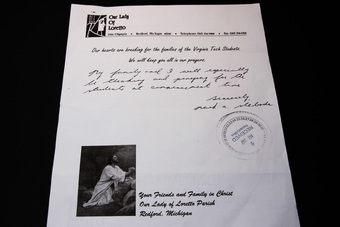 Our Lady
Of
Loretto
Redford, Michigan
Telephone
Fax
Our hearts are breaking for the families of the Virginia Tech Students.
We will keep you all in our prayers.
My family and I will especially
be thinking and praying for the
students at commencement time
Sincerely,
RECEIVED
Your Friends and Family in Christ
Our Lady of Loretto Parish
Redford, Michigan